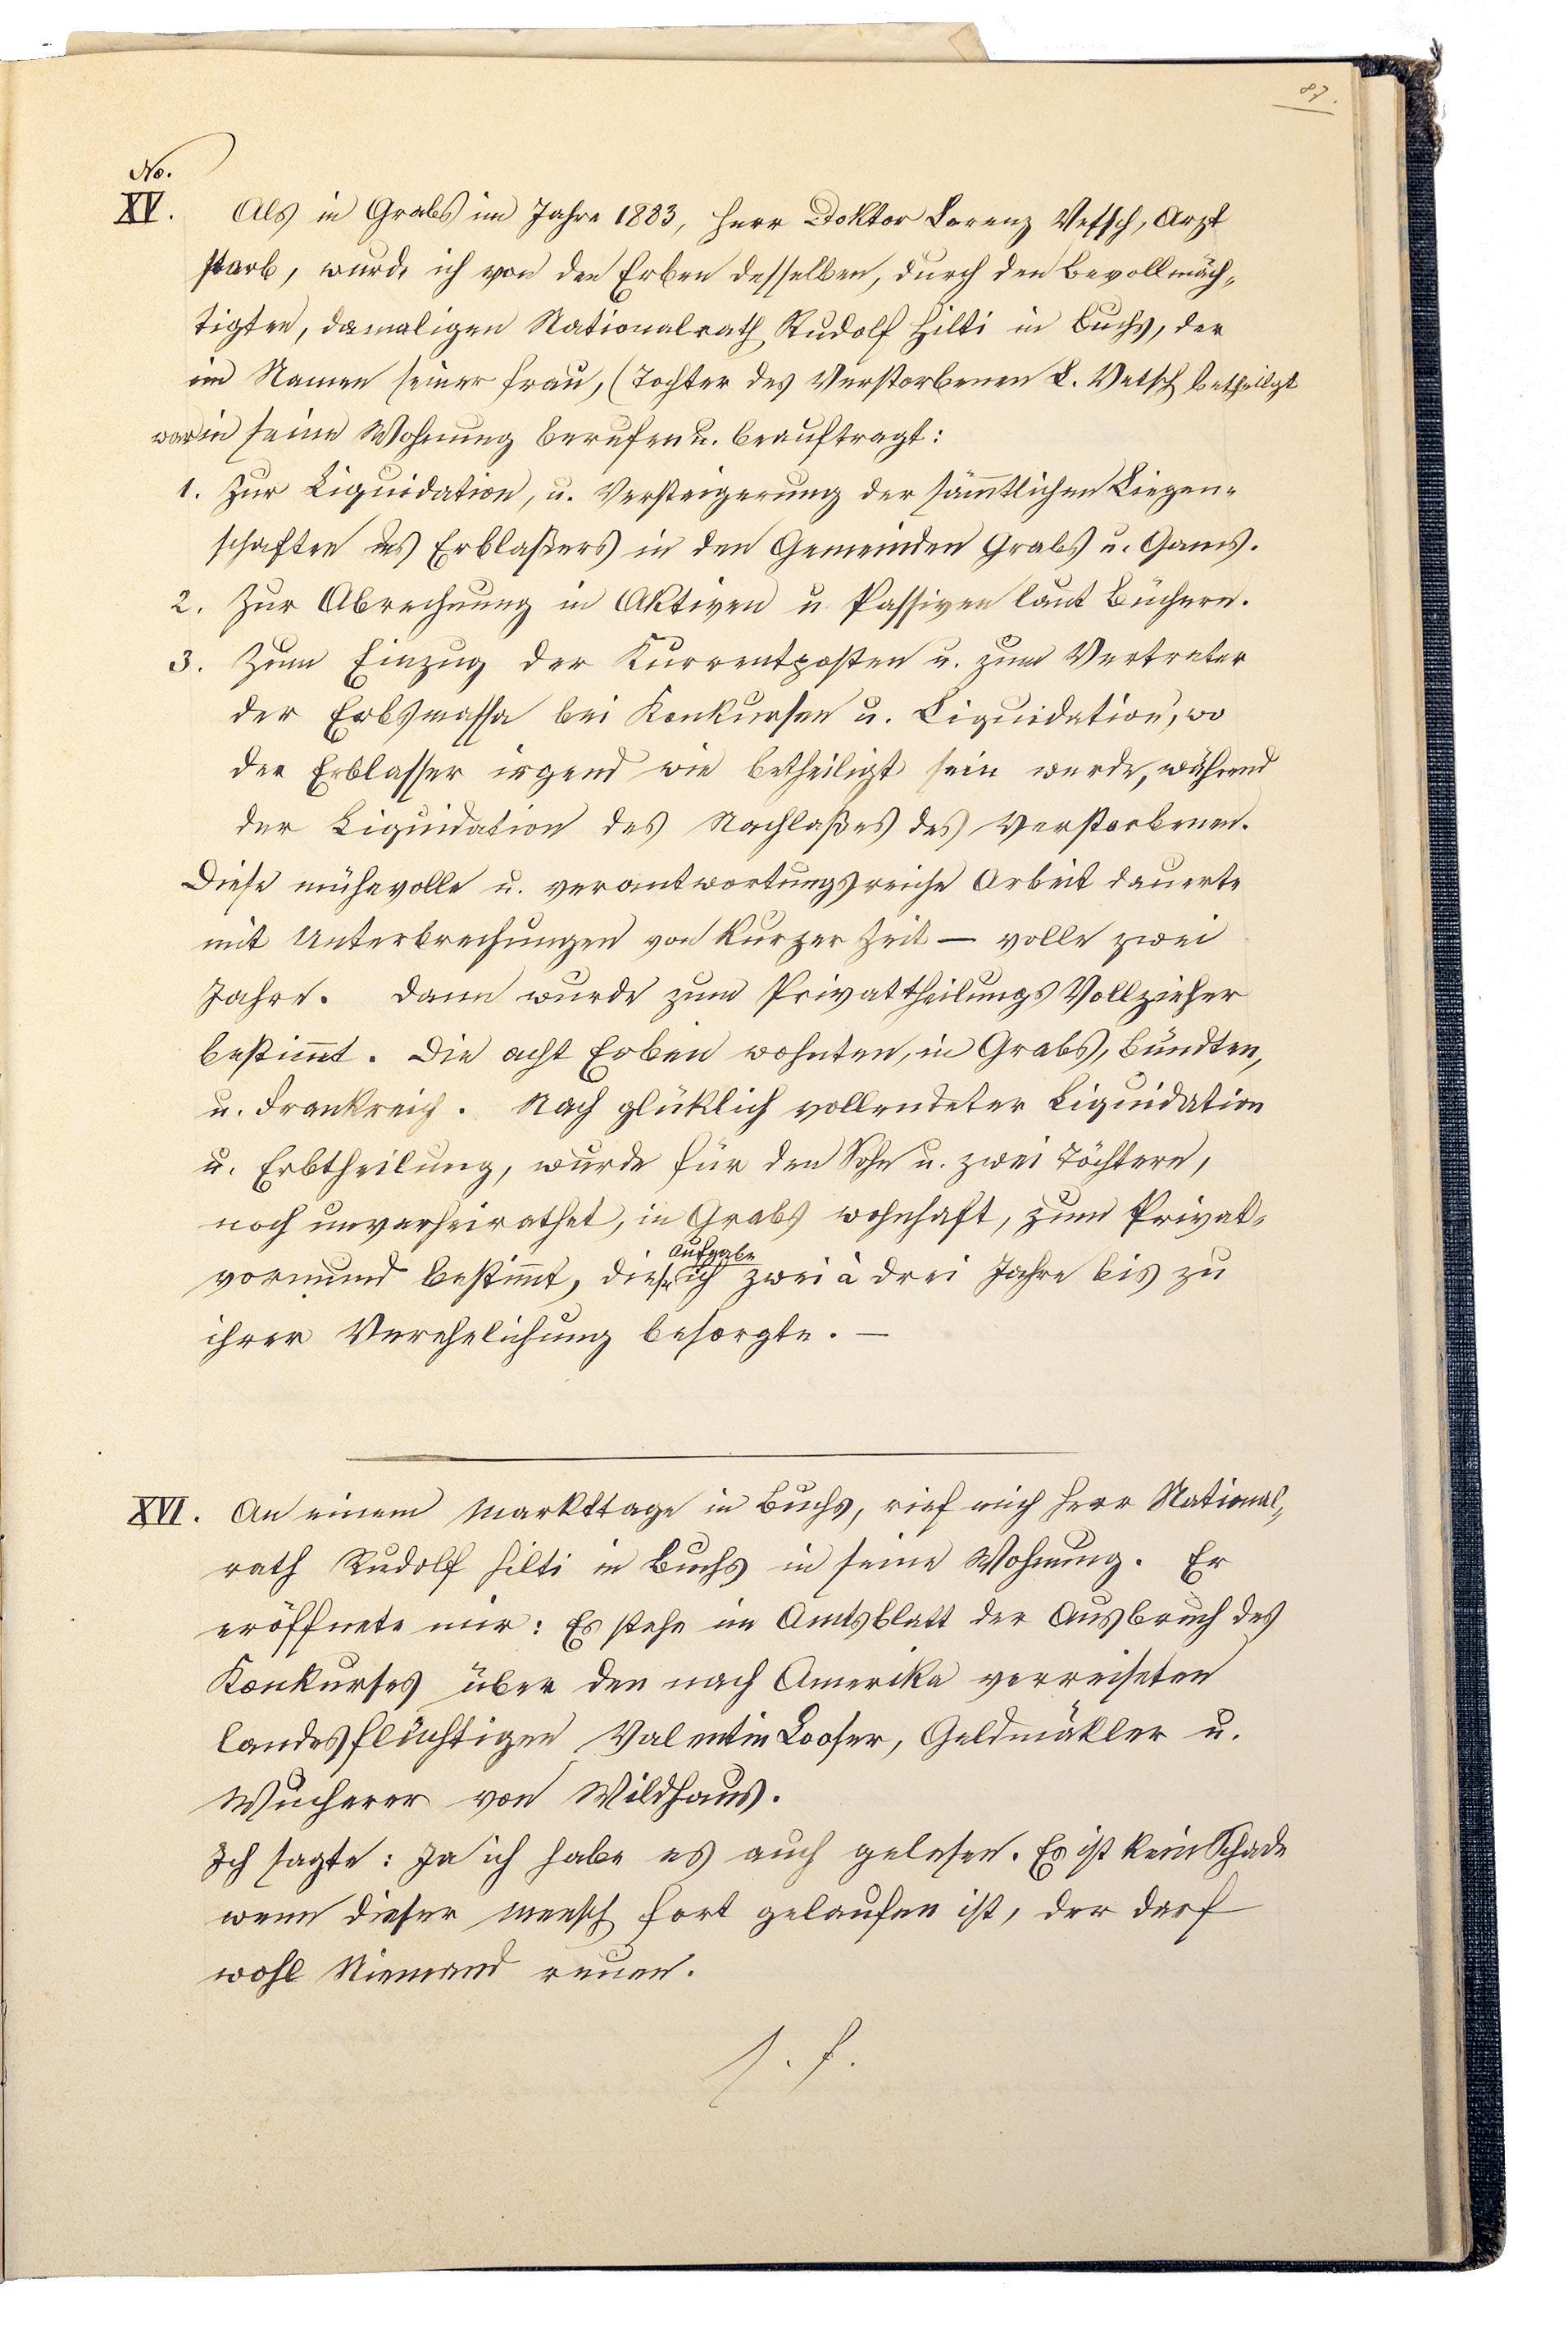 87.
No.
XV. Als in Grabs im Jahre 1883, Herr Doktor Lorenz Vetsch, Arzt
starb, wurde ich von den Erben desselben, durch den bevollmäch-
tigten, damaligen Nationalrath Rudolf Hilti in Buchs, der
im Namen seiner Frau, (Tochter des Verstorbenen L. Vetsch betheiligt
war in seine Wohnung berufen u. beauftragt:
1. Zur Liquidation, u. Versteigerung der sämmtlichen Liegen-
schaften des Erblaßers in den Gemeinden Grabs u. Gams.
2. Zur Abrechnung in Aktiven u Passiven laut Büchern.
3. Zum Einzug der Kurrentposten u. zum Vertreter
der Erbsmassa bei Konkursen u. Liquidation, wo
der Erblasser irgend wie betheiligt sein werde, während
der Liquidation des Nachlaßes des Verstorbenen.
Diese mühevolle u. verantwortungsreiche Arbeit dauerte
mit Unterbrechungen von kurzer Zeit — volle zwei
Jahre. Dann wurde zum Privattheilungs Vollzieher
bestimmt. Die acht Erben wohnten, in Grabs, Bündten,
u. Frankreich. Nach glüklich vollendeter Liquidation
u. Erbtheilung, wurde für den Sohn u. zwei Töchtern,
noch unverheirathet, in Grabs wohnhaft, zum Privat-
Aufgabe
vormund bestimmt, diese ich zwei à drei Jahre bis zu
ihrer Verehelichung besorgte. —
XVI. An einem Markttage in Buchs, rief mich Herr National-
rath Rudolf Hilti in Buchs in seine Wohnung. Er
eröffnete mir: Es stehe im Amtsblatt der Ausbruch des
Konkurses über den nach Amerika verreiseten
landesflüchtigen Valentin Looser, Geldmäkler u.
Wucherer von Wildhaus.
Ich sagte: Ja ich habe es auch gelesen. Es ist kein Schade
wenn dieser Mensch fort gelaufen ist, der darf
wohl Niemand reuen.